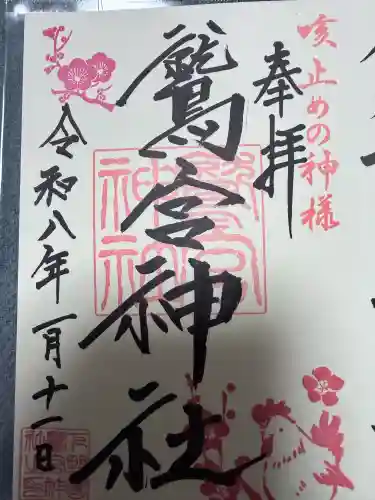 咳止めの神様
奉拝
鷲宮神社
令和八年一月十一日
鷲宮神社